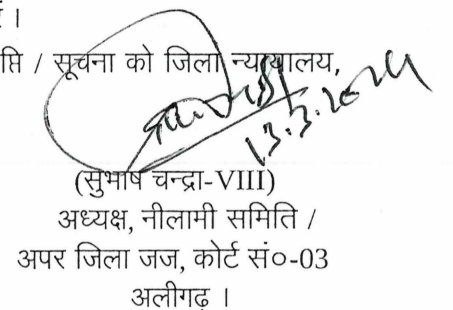 ।
प्ति / सूचना को जिला न्यायालय,
13.3.2024
(सुभाष चन्द्रा-VIII)
अध्यक्ष, नीलामी समिति /
अपर जिला जज, कोर्ट सं०-03
अलीगढ़ ।